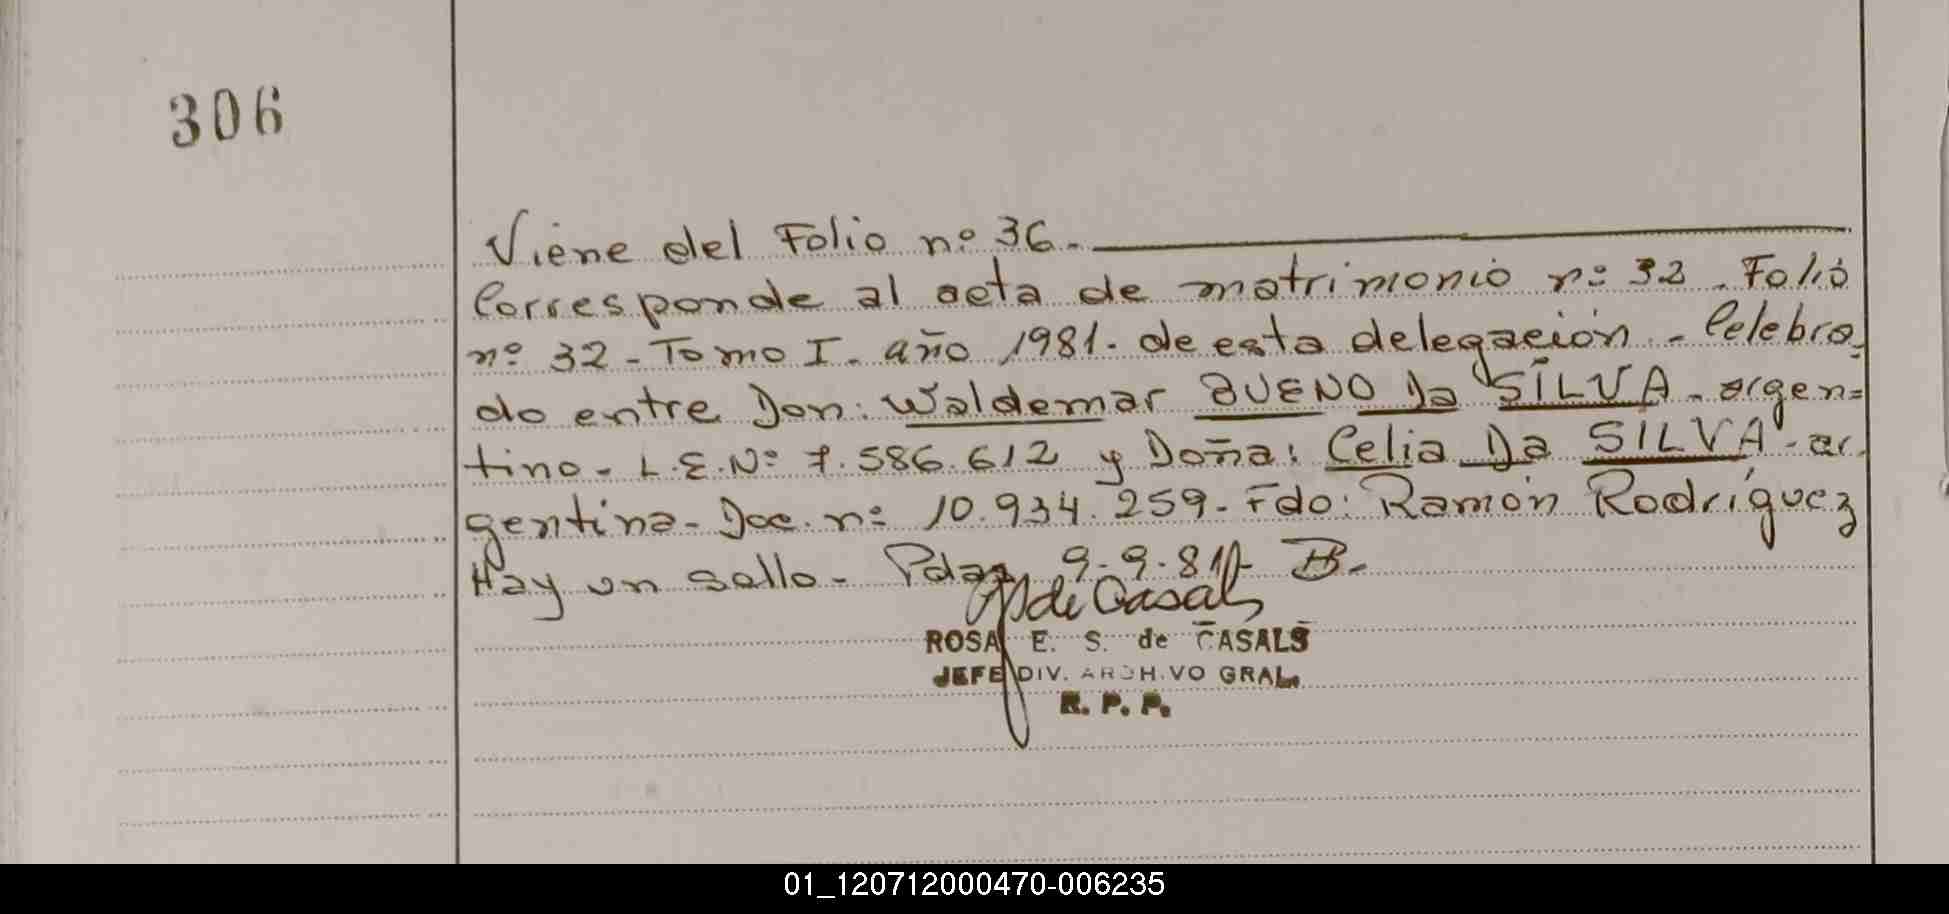 306
Viene del Folio nº 36.
Corresponde al acta de matrimonio nº 32. Folio
nº 32 - Tomo I. año 1981. de esta delegación. - Celebra-
do entre Don: Waldemar BUENO Da SILVA - argen=
tino - L.E. Nº 7.586.612 y Doña: Celia Da SILVA - ar-
gentina - Doc. nº 10.934.259 - Fdo: Ramón Rodríguez
Hay un sello - Pdas 9-9-81 - B.
de Casals
ROSA E. S. de CASALS
JEFE DIV. ARCHIVO GRAL.
R. P. P.
01_120712000470-006235